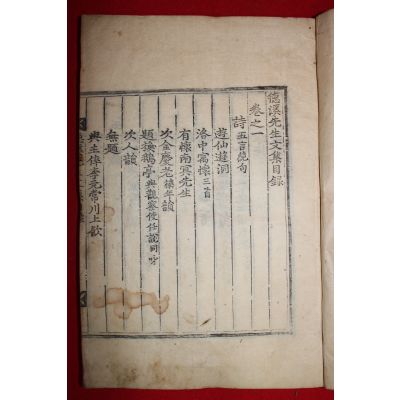 德溪先生文集目錄
卷之一
詩 五言絶句
遊仙遊洞
洛中寓懷 三首
有懷南冥先生
次金慶老 韻
題換鵝亭與觀察使任說同吟
次人韻
無題
與主倅李 常川上飲